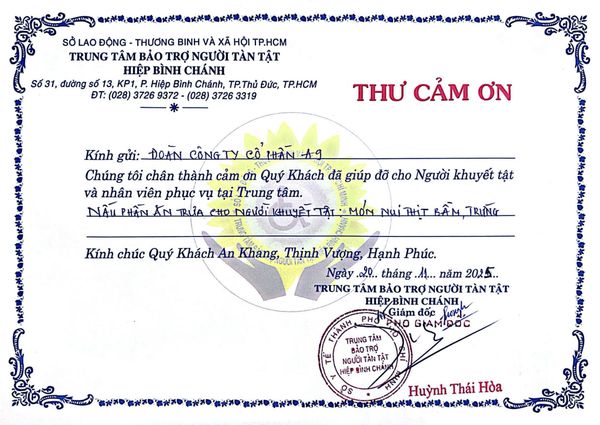 SỞ LAO ĐỘNG - THƯƠNG BINH VÀ XÃ HỘI TP.HCM
TRUNG TÂM BẢO TRỢ NGƯỜI TÀN TẬT
HIỆP BÌNH CHÁNH
Số 31, đường số 13, KP1, P. Hiệp Bình Chánh, TP.Thủ Đức, TP.HCM
ĐT: (028) 3726 9372 - (028) 3726 3319
THƯ CẢM ƠN
Kính gửi: ĐOÀN CÔNG TY CỔ PHẦN A9
Chúng tôi chân thành cảm ơn Quý Khách đã giúp đỡ cho Người khuyết tật
và nhân viên phục vụ tại Trung tâm.
NẤU PHẦN ĂN TRƯA CHO NGƯỜI KHUYẾT TẬT: MÓN NUI THỊT BẰM, TRỨNG
Kính chúc Quý Khách An Khang, Thịnh Vượng, Hạnh Phúc.
Ngày 20 tháng 11 năm 2025
TRUNG TÂM BẢO TRỢ NGƯỜI TÀN TẬT
HIỆP BÌNH CHÁNH
Giám đốc
PHÓ GIÁM ĐỐC
SỞ Y TẾ THÀNH PHỐ HỒ CHÍ MINH
TRUNG TÂM
BẢO TRỢ
NGƯỜI TÀN TẬT
HIỆP BÌNH CHÁNH
Huỳnh Thái Hòa